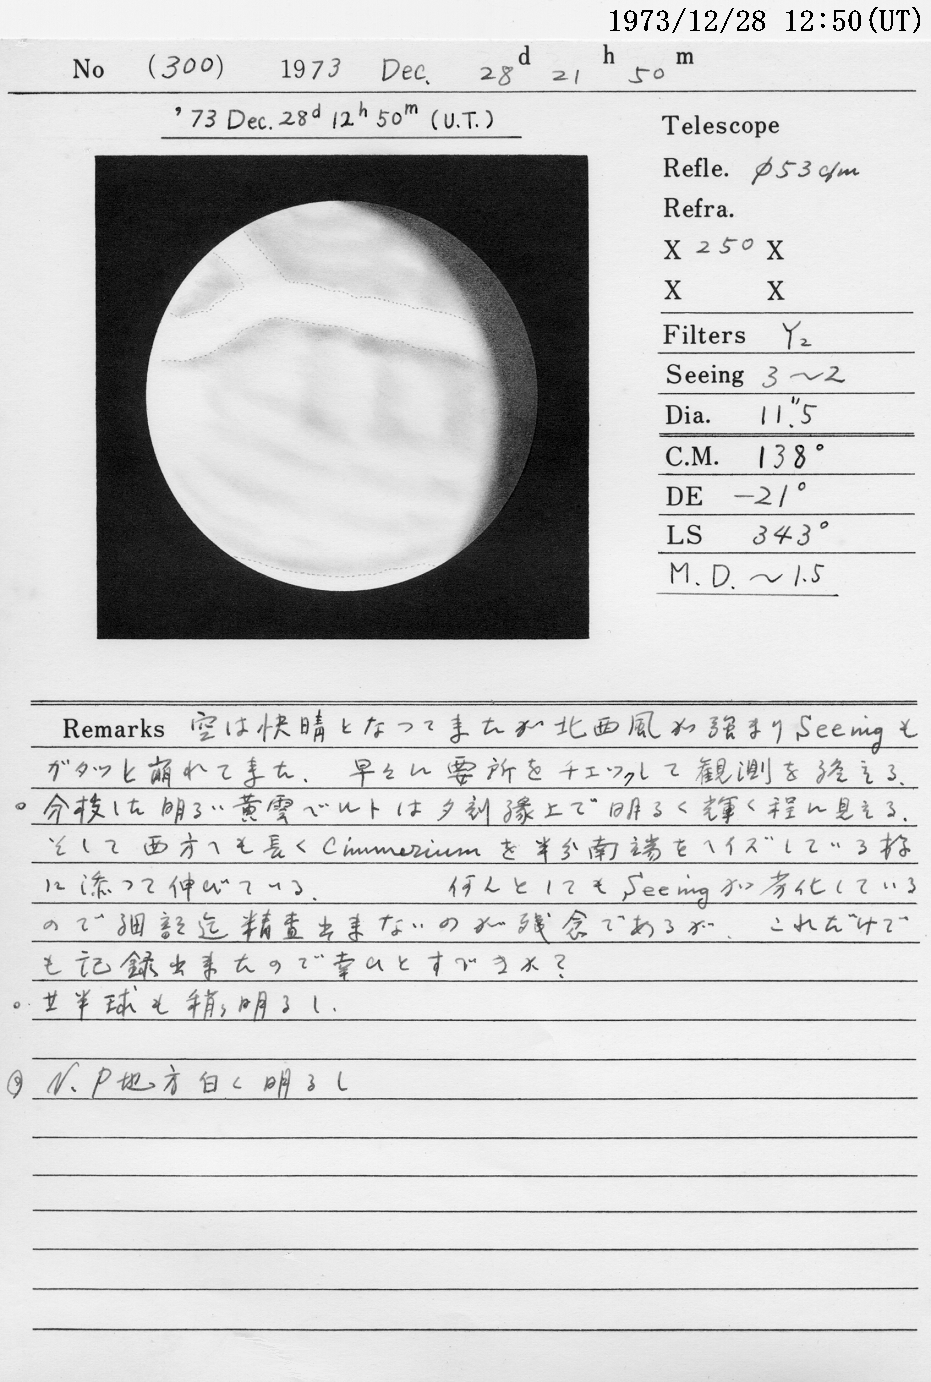 1973/12/28 12:50(UT)
No (300) 1973 Dec. 28d 21h 50m
'73 Dec. 28d 12h 50m (U.T.)
Telescope
Refle. φ53 c/m
Refra.
X 250 X
X X
Filters Y2
Seeing 3~2
Dia. 11".5
C.M. 138°
DE -21°
LS 343°
M.D. ~1.5
Remarks 空は快晴となって来たが北西風が強まりSeeingも
ガタッと崩れて来た. 早々に要所をチェックして観測を終える.
分枝した明るい黄雲ベルトは夕刻縁上で明るく輝く程に見える.
そして西方へも長くCimmeriumを半分南端をヘイズしている様
に添って伸びている. 何んとしてもSeeingが劣化している
ので細部迄精査出来ないのが残念であるが、これだけで
も記録出来たので幸いとすべきか?
半球も稍々明るし.
N.P地方白く明るし